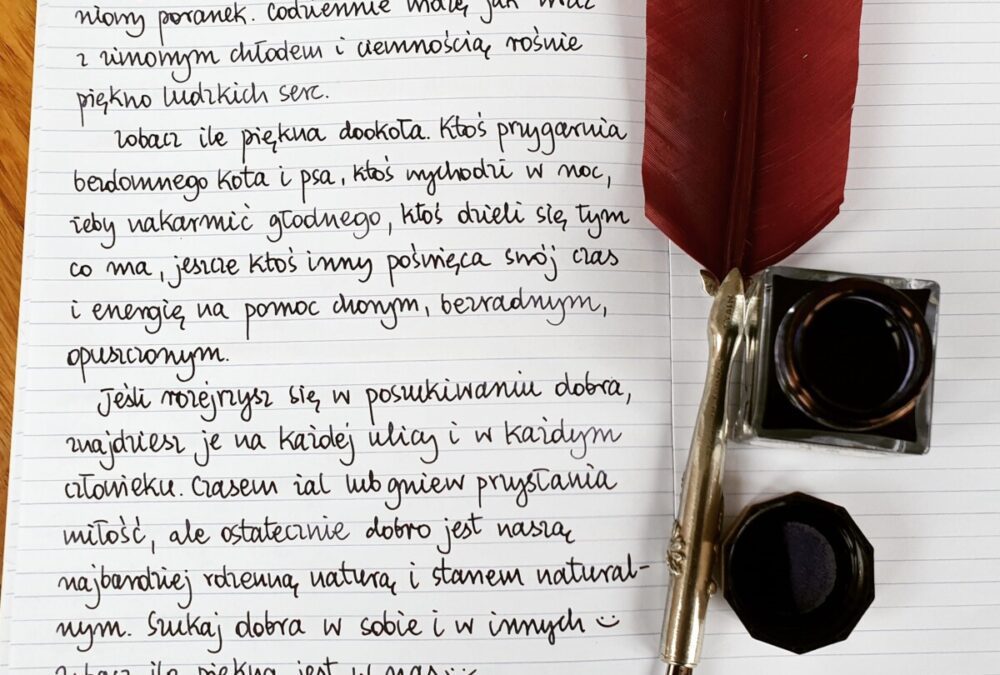 niowy poranek. Codziennie widzę jak wraz
z zimowym chłodem i ciemnością rośnie
piękno ludzkich serc.
Zobacz ile piękna dookoła. Ktoś przygarnia
bezdomnego kota i psa, ktoś wychodzi w noc,
żeby nakarmić głodnego, ktoś dzieli się tym
co ma, jeszcze ktoś inny poświęca swój czas
i energię na pomoc chorym, bezradnym,
opuszczonym.
Jeśli rozejrzysz się w poszukiwaniu dobra,
znajdziesz je na każdej ulicy i w każdym
człowieku. Czasem żal lub gniew przysłania
miłość, ale ostatecznie dobro jest naszą
najbardziej rdzenną naturą i stanem natural-
nym. Szukaj dobra w sobie i w innych :)
Zobacz ile piękna jest w nas :)